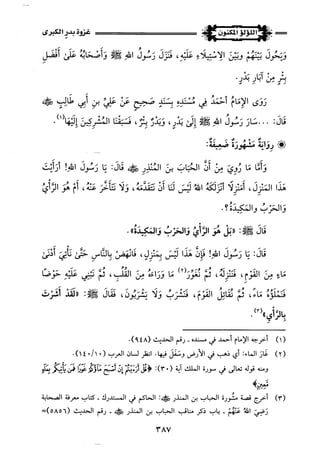 غزوة بدر الكبرى
اللؤلؤ المكنون
وَيَحُولَ بَيْنَهُمْ وبَيْنَ الِاسْتِيلَاءِ عَلَيْهِ، فَنَزَلَ رَسُولُ اللهِ ﷺ وَأَصْحَابُهُ عَلَى أَفْضَلِ
بِئْرٍ مِنْ آبَارِ بَدْرٍ.
رَوَى الإِمَامُ أَحْمَدُ فِي مُسْنَدِهِ بِسَنَدٍ صَحِيحٍ عَنْ عَلِيِّ بنِ أَبِي طَالِبٍ ﷺ
قَالَ: ... سَارَ رَسُولُ اللهِ ﷺ إِلَى بَدْرٍ، وَبَدْرٌ بِئْرٌ، فَسَبَقْنَا المُشْرِكِينَ إِلَيْهَا(١).
* رِوَايَةٌ مَشْهُورَةٌ ضَعِيفَةٌ:
وَأَمَّا مَا رُوِيَ مِنْ أَنَّ الحُبَابَ بنَ المُنْذِرِ ﷺ قَالَ: يَا رَسُولَ اللهِ! أَرَأَيْتَ
هَذَا المَنْزِلَ، أَمَنْزِلًا أَنْزَلَكَهُ اللهُ لَيْسَ لَنَا أَنْ نَتَقَدَّمَهُ، وَلَا نَتَأَخَّرَ عَنْهُ، أَمْ هُوَ الرَّأْيُ
وَالحَرْبُ وَالمَكِيدَةُ؟.
قَالَ ﷺ: «بَلْ هُوَ الرَّأْيُ وَالحَرْبُ وَالمَكِيدَةُ».
قَالَ: يَا رَسُولَ اللهِ! فَإِنَّ هَذَا لَيْسَ بِمَنْزِلٍ، فَانْهَضْ بِالنَّاسِ حَتَّى نَأْتِيَ أَدْنَى
مَاءٍ مِنَ القَوْمِ، فَنَنْزِلَهُ، ثُمَّ نُغَوِّرُ(٢) مَا وَرَاءَهُ مِنَ القُلُبِ، ثُمَّ نَبْنِي عَلَيْهِ حَوْضًا
فَنَمْلَؤُهُ مَاءً، ثُمَّ نُقَاتِلُ القَوْمَ، فَنَشْرَبُ وَلَا يَشْرَبُونَ، فَقَالَ ﷺ: «لَقَدْ أَشَرْتَ
بِالرَّأْيِ»(٣).
(١) أخرجه الإمام أحمد في مسنده ـ رقم الحديث (٩٤٨).
(٢) غَارَ الماءُ: أي ذهب في الأرض وسَفُلَ فيها. انظر لسان العرب (١٤٠/١٠).
ومنه قوله تعالى في سورة الملك آية (٣٠): ﴿قُلْ أَرَءَيْتُمْ إِنْ أَصْبَحَ مَاؤُكُمْ غَوْرًا فَمَن يَأْتِيكُم بِمَاءٍ
مَّعِينٍ﴾
(٣) أخرج قصة مشُورة الحباب بن المنذر ﷺ: الحاكم في المستدرك ـ كتاب معرفة الصحابة
رَضِيَ اللهُ عَنْهُمْ ـ باب ذكر مناقب الحباب بن المنذر ﷺ ـ رقم الحديث (٥٨٥٦)=
٣٨٧